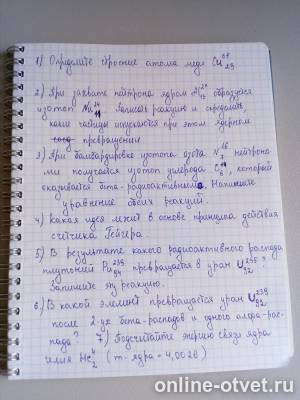 1) Определите строение атома меди Cu 64 29
2) При захвате нейтрона ядром Al 27 13 образуется
изотоп Na 24 11. Записать реакцию и определить,
какие частицы испускаются при этом ядерном
превращении
3) При бомбардировке изотопа азота N 16 7 нейтрона-
ми получается изотоп углерода C 6, который
оказывается бета-радиоактивным. Напишите
уравнение обоих реакций.
4) Какая идея лежит в основе принципа действия
счетчика Гейгера.
5) В результате какого радиоактивного распада
плутоний Pu 239 94 превращается в уран U 235 92 ?
Запишите эту реакцию.
6) В какой элемент превращается уран U 239 92
после 2-ух бета-распадов и одного альфа-рас-
пада? 7) Подсчитайте энергию связи ядра
гелия He 4 2 (m-ядра = 4,0026)
online-otvet.ru